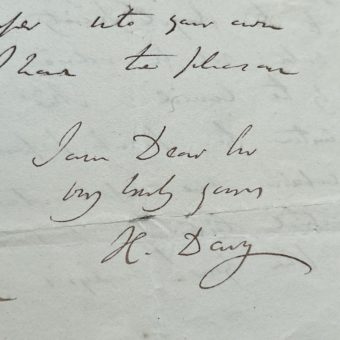 into your own
I have the pleasure
I am Dear Sir
very truly yours
H. Davy